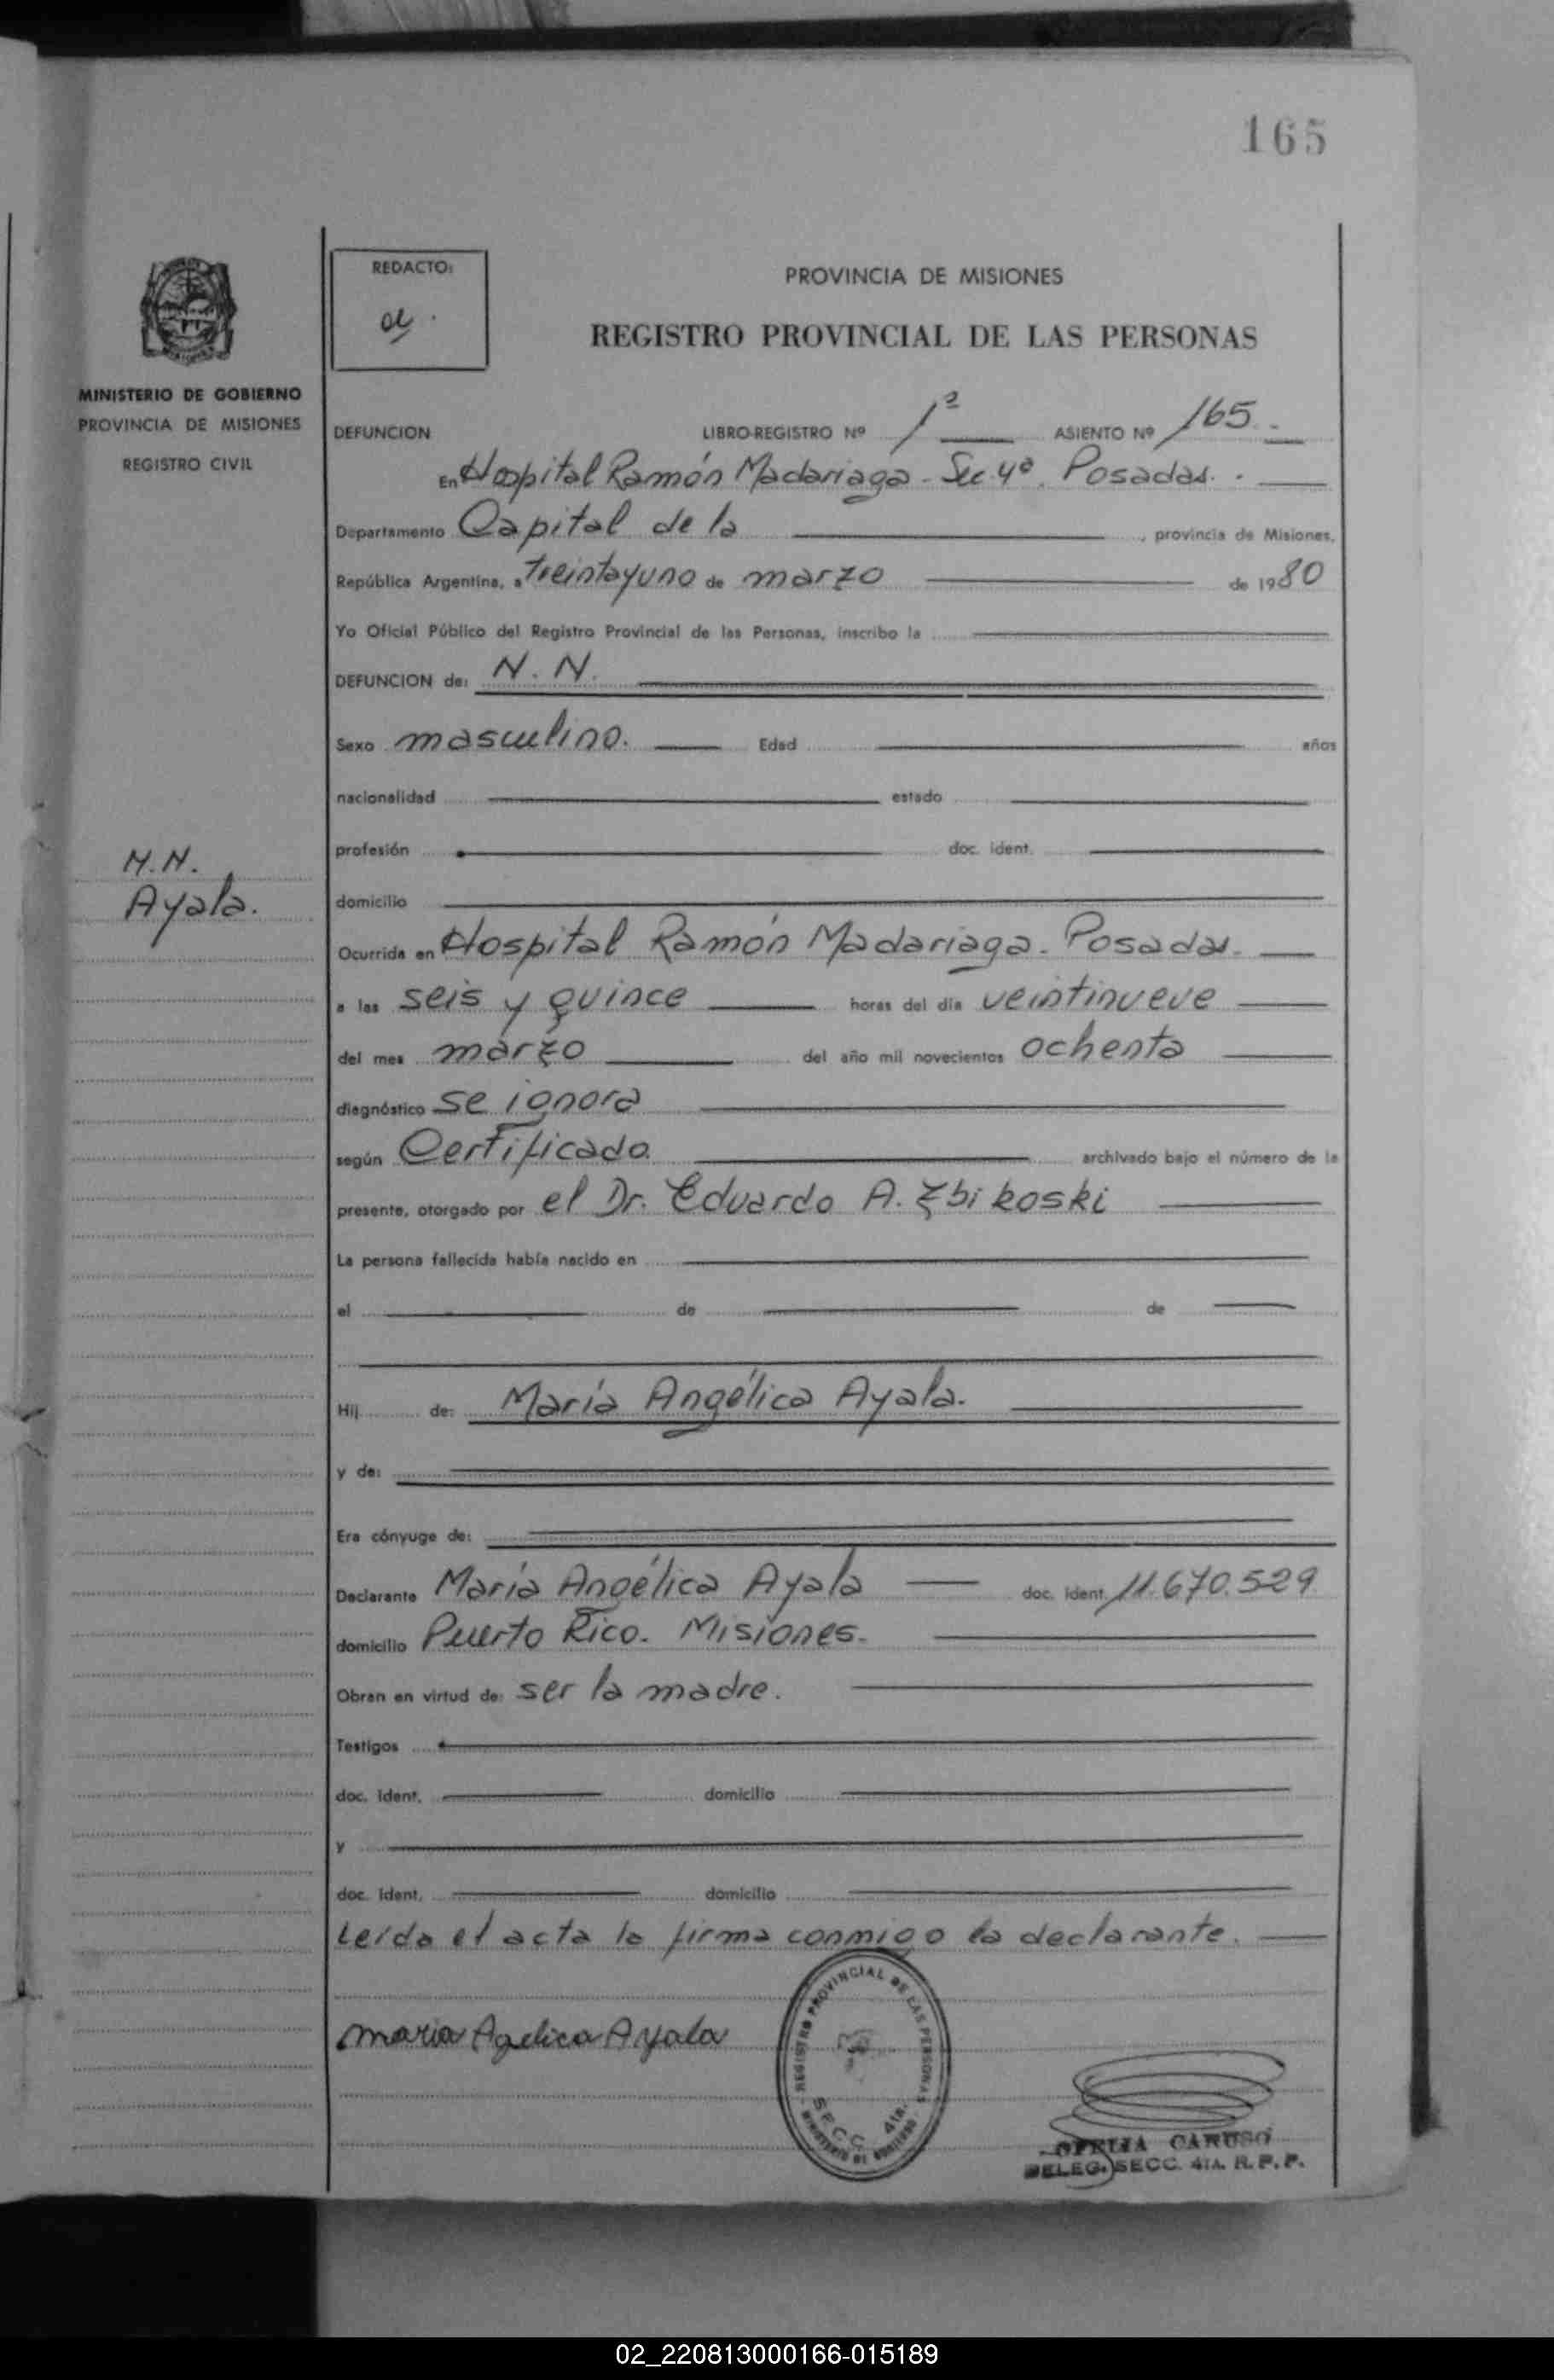 165
REDACTO:
PROVINCIA DE MISIONES
REGISTRO PROVINCIAL DE LAS PERSONAS
MINISTERIO DE GOBIERNO
PROVINCIA DE MISIONES
REGISTRO CIVIL
DEFUNCION LIBRO-REGISTRO Nº 1º ASIENTO Nº 165
En Hospital Ramón Madariaga - Sec. 4ª. Posadas.
Departamento Capital de la , provincia de Misiones,
República Argentina, a treintayuno de marzo de 1980
Yo Oficial Público del Registro Provincial de las Personas, inscribo la
DEFUNCION de: N. N.
Sexo masculino. Edad años
nacionalidad estado
profesión doc. ident.
N.N.
Ayala.
domicilio
Ocurrida en Hospital Ramón Madariaga. Posadas.
a las seis y quince horas del día veintinueve
del mes marzo del año mil novecientos ochenta
diagnóstico se ignora
según Certificado archivado bajo el número de la
presente, otorgado por el Dr. Eduardo A. Zbikoski
La persona fallecida había nacido en
el de de
Hij de: María Angélica Ayala.
y de:
Era cónyuge de:
Declarante María Angélica Ayala doc. ident. 11.670.529
domicilio Puerto Rico. Misiones.
Obran en virtud de: ser la madre.
Testigos
doc. ident. domicilio
y
doc. ident. domicilio
Leída el acta la firma conmigo la declarante.
maria Agelica Ayala
REGISTRO PROVINCIAL DE LAS PERSONAS
MINISTERIO DE GOBIERNO
OFELIA CARUSO
DELEG. SECC. 4TA. R. P. P.
02_220813000166-015189